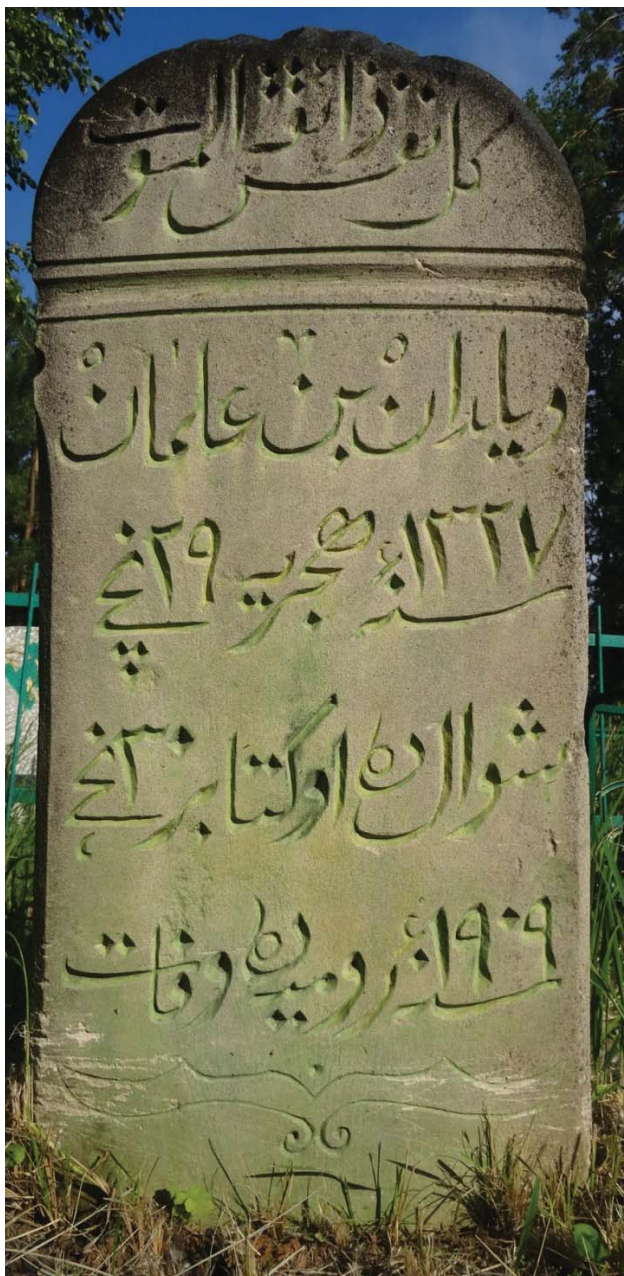 كل نفس ذائقة الموت
ويلدان بن علمان
١٣٢٧ سنهٔ هجريه ٢٩ نچى
شوالده اوكتابر ٣٠ نجى
١٩٠٩ سنهٔ روميده وفات